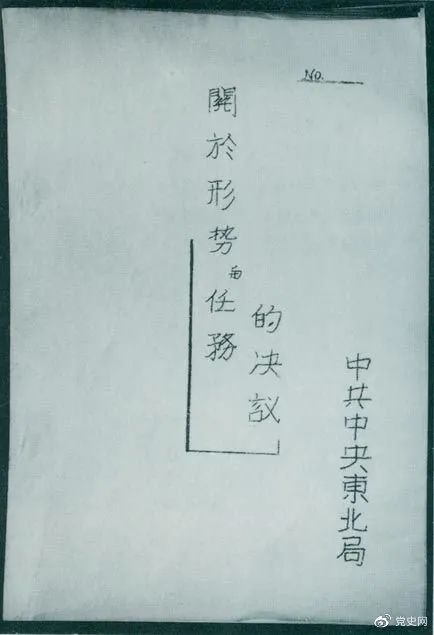 No.
關於形势與任務
的决議
中共中央東北局
党史网